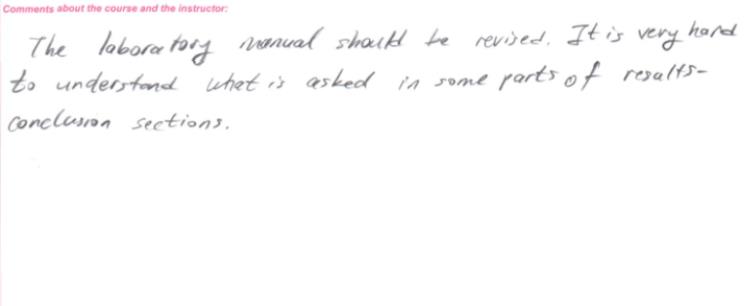 Comments about the course and the instructor:
The laboratory manual should be revised. It is very hard
to understand what is asked in some parts of results-
conclusion sections.